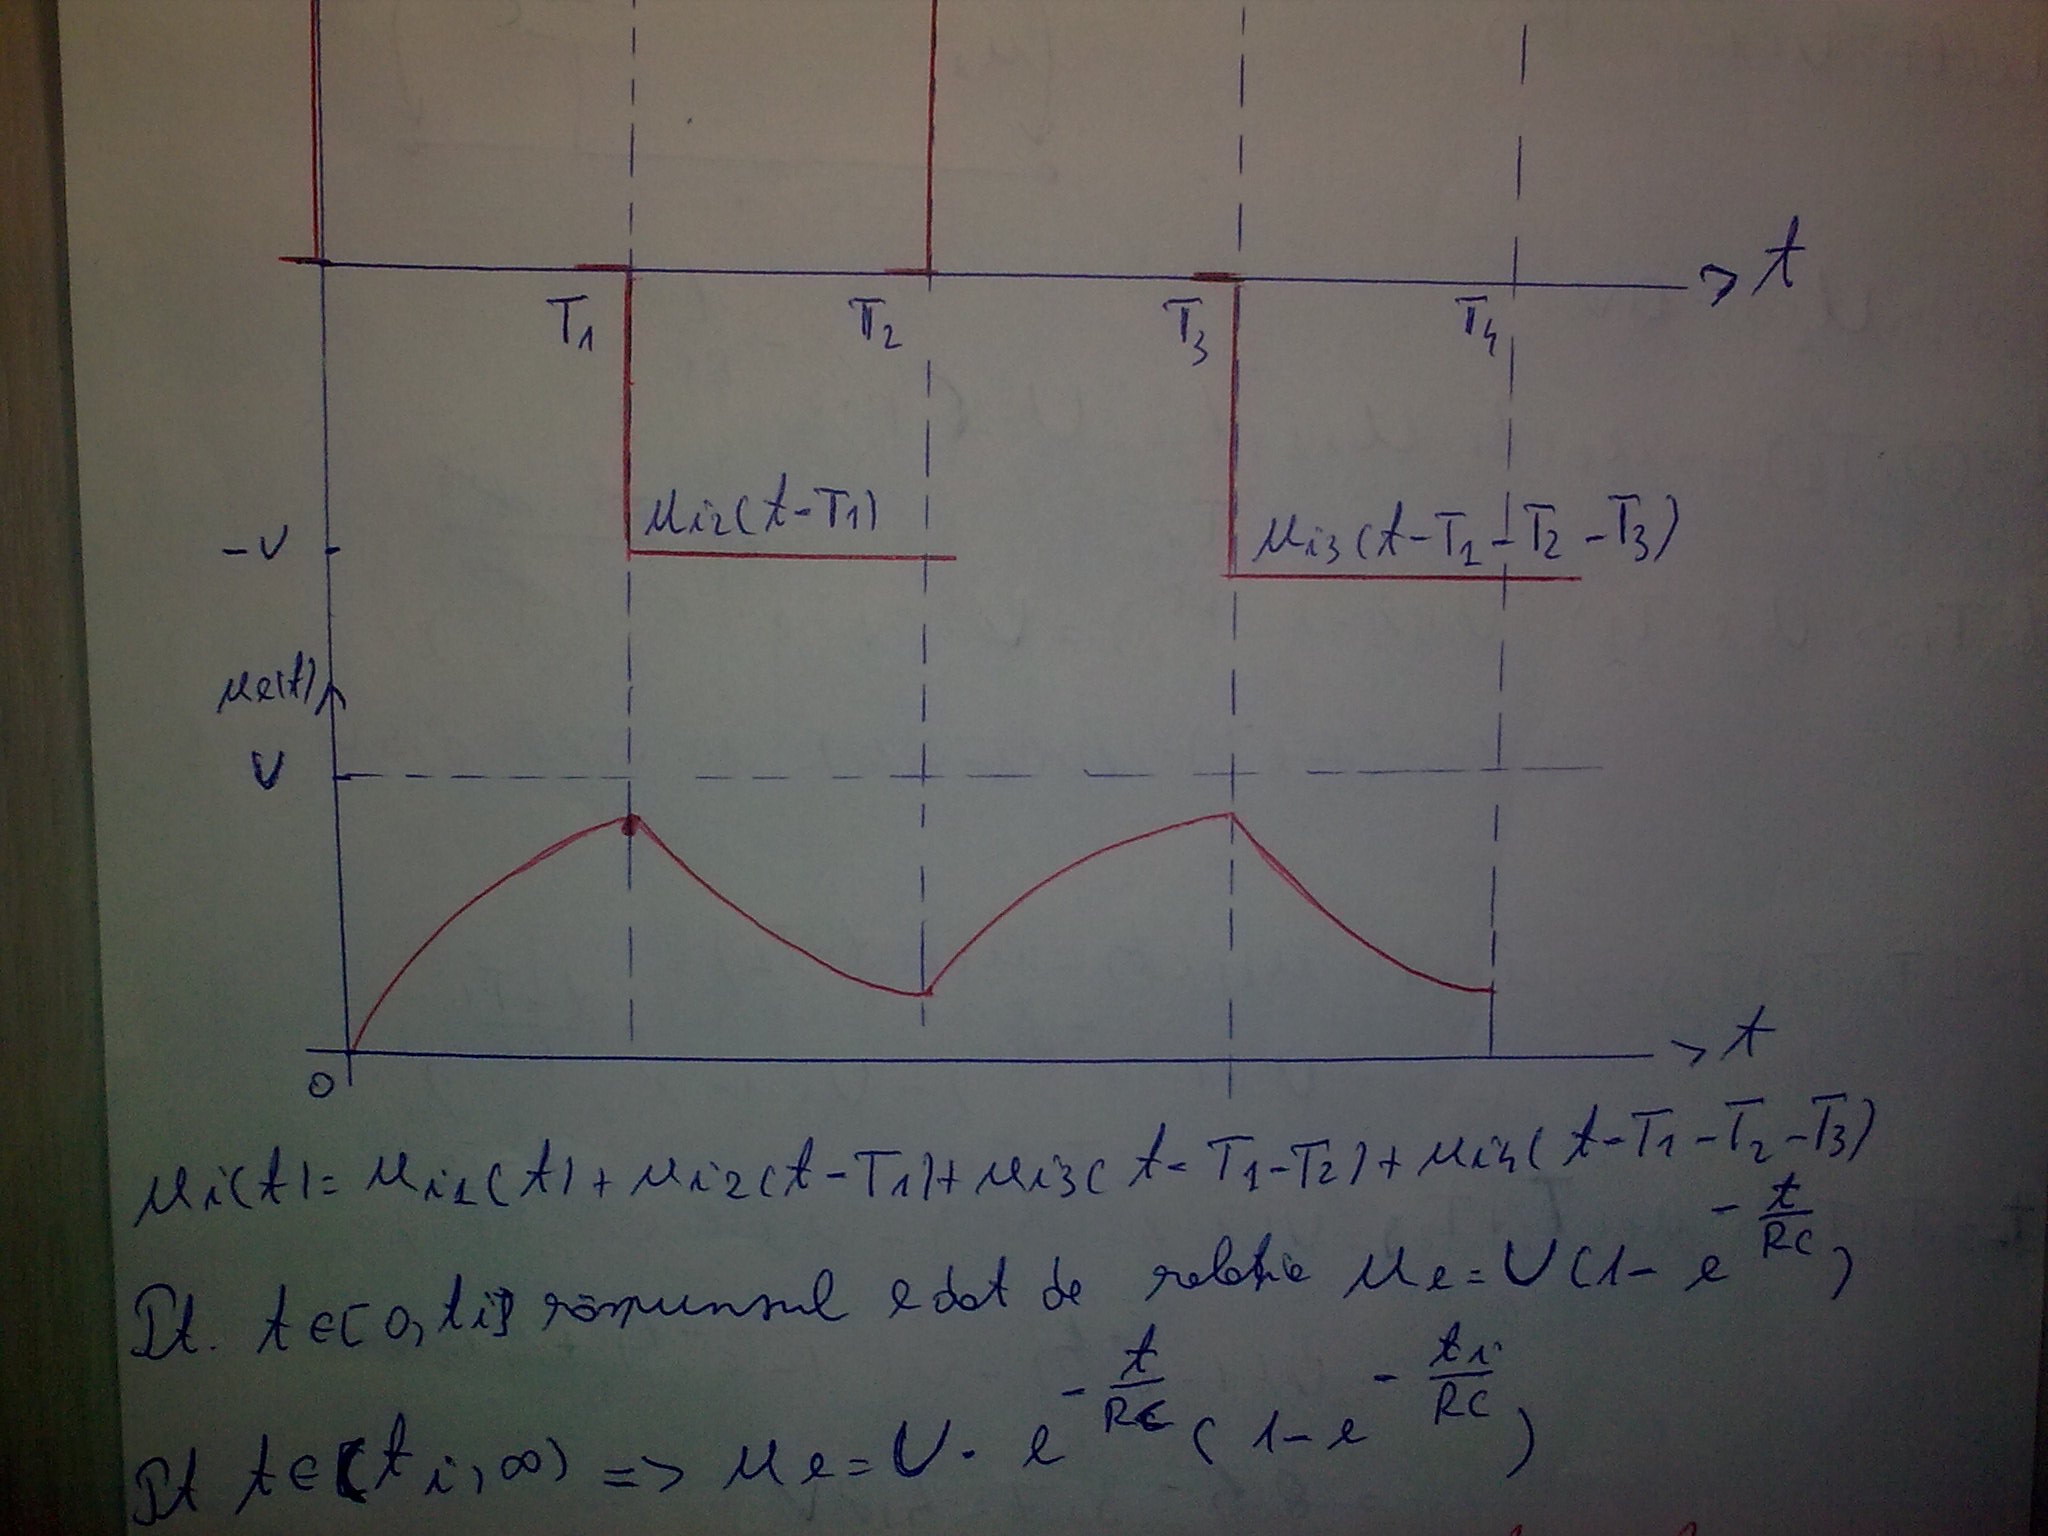 t
T1 T2 T3 T4
ui2(t-T1)
-U
ui3(t-T1-T2-T3)
ue(t)
U
t
0
ui(t)=ui1(t)+ui2(t-T1)+ui3(t-T1-T2)+ui4(t-T1-T2-T3)
Pt. t∈[0,ti] răspunsul e dat de relația ue=U(1-e^{-t/RC})
Pt t∈(ti,∞) => ue=U·e^{-t/RC}(1-e^{-ti/RC})